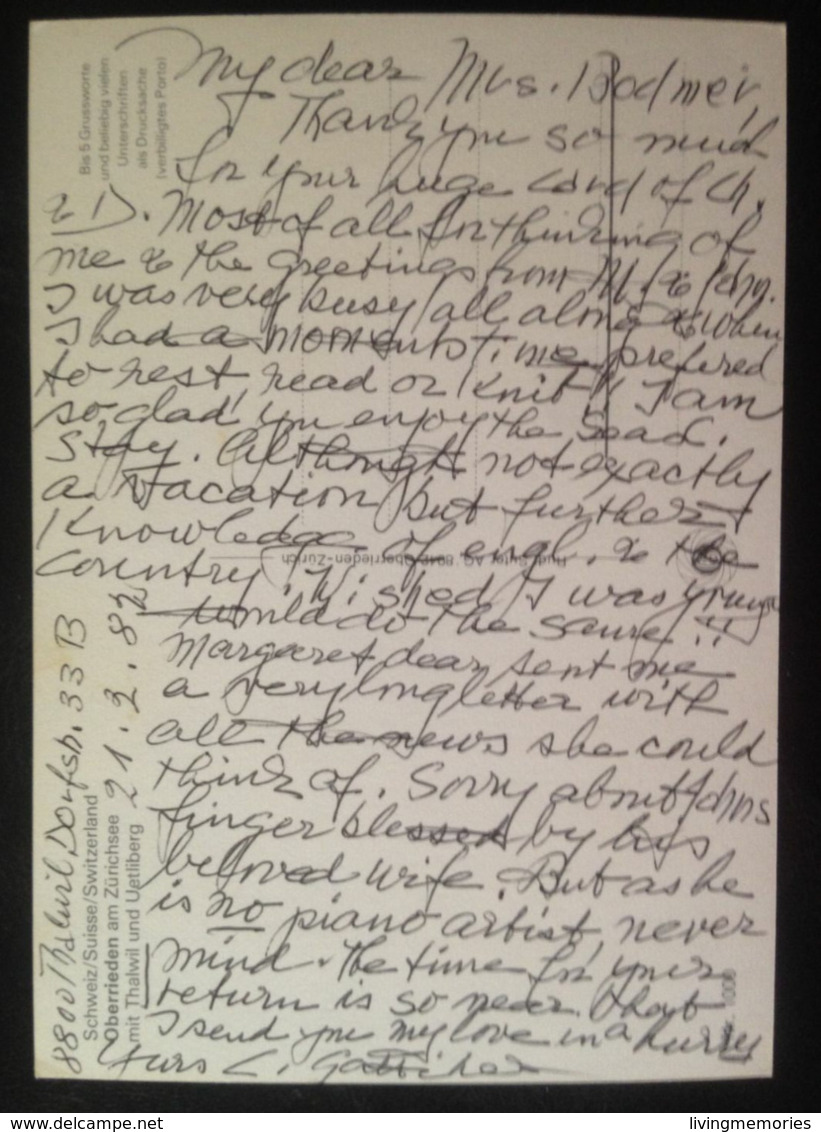 My dear Mrs. Bodmer,
Thank you so much
for your huge card of Ch.
& D. Most of all for thinking of
me & the greetings from M. & John.
I was very busy all along & when
I had a moments time prefered
to rest, read or knit!! I am
so glad you enjoy the
stay. Although not exactly
a vacation but further
Knowledge of engl. & the
country. Wished I was young
would do the same!!
Margaret dear sent me
a very long letter with
all the news she could
think of. Sorry about Johns
finger blessed by his
beloved wife. But as he
is no piano artist, never
mind. The time for your
return is so near that
I send you my love in a hurry
Yurs C.
8800 Thalwil Dorfstr. 33 B
21.2.82
Schweiz/Suisse/Switzerland
Oberrieden am Zürichsee
mit Thalwil und Uetliberg
Bis 5 Grussworte
und beliebig vielen
Unterschriften
als Drucksache
(verbilligtes Porto)
AG, 8942 Oberrieden-Zürich
livingmemories